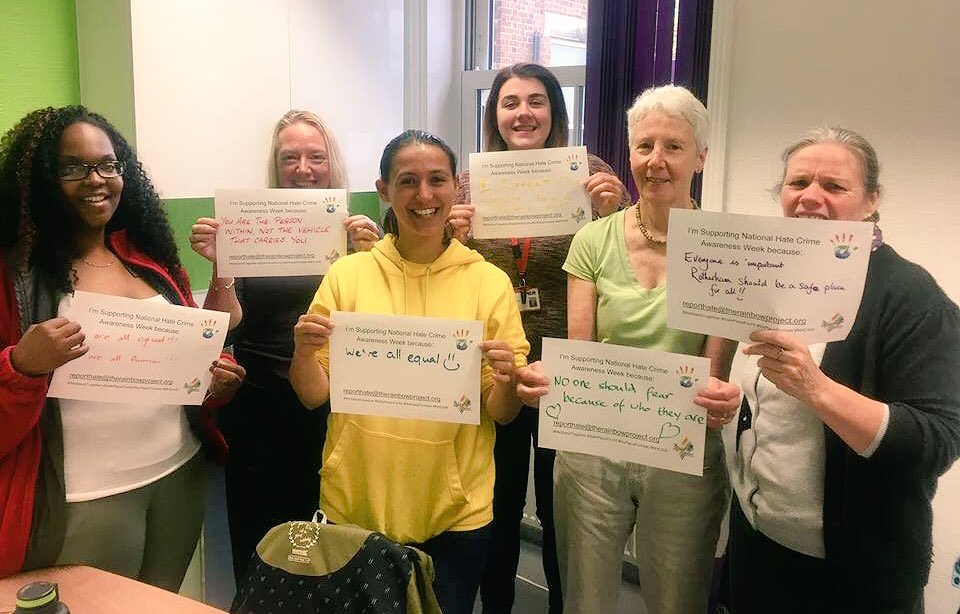 I'm Supporting National Hate Crime
Awareness Week because:
are all equal!!!
are all human!!!
reporthate@therainbowproject.org
I'm Supporting National Hate Crime
Awareness Week because:
YOU ARE THE PERSON
WITHIN, NOT THE VEHICLE
THAT CARRIES YOU
reporthate@therainbowproject.org
I'm Supporting National Hate Crime
Awareness Week because:
We're all equal!
reporthate@therainbowproject.org
I'm Supporting National Hate Crime
Awareness Week because:
I Support
reporthate@therainbowproject.org
I'm Supporting National Hate Crime
Awareness Week because:
No one should fear
because of who they are
reporthate@therainbowproject.org
I'm Supporting National Hate Crime
Awareness Week because:
Everyone is important
Rotherham should be a safe place
for all!!
reporthate@therainbowproject.org